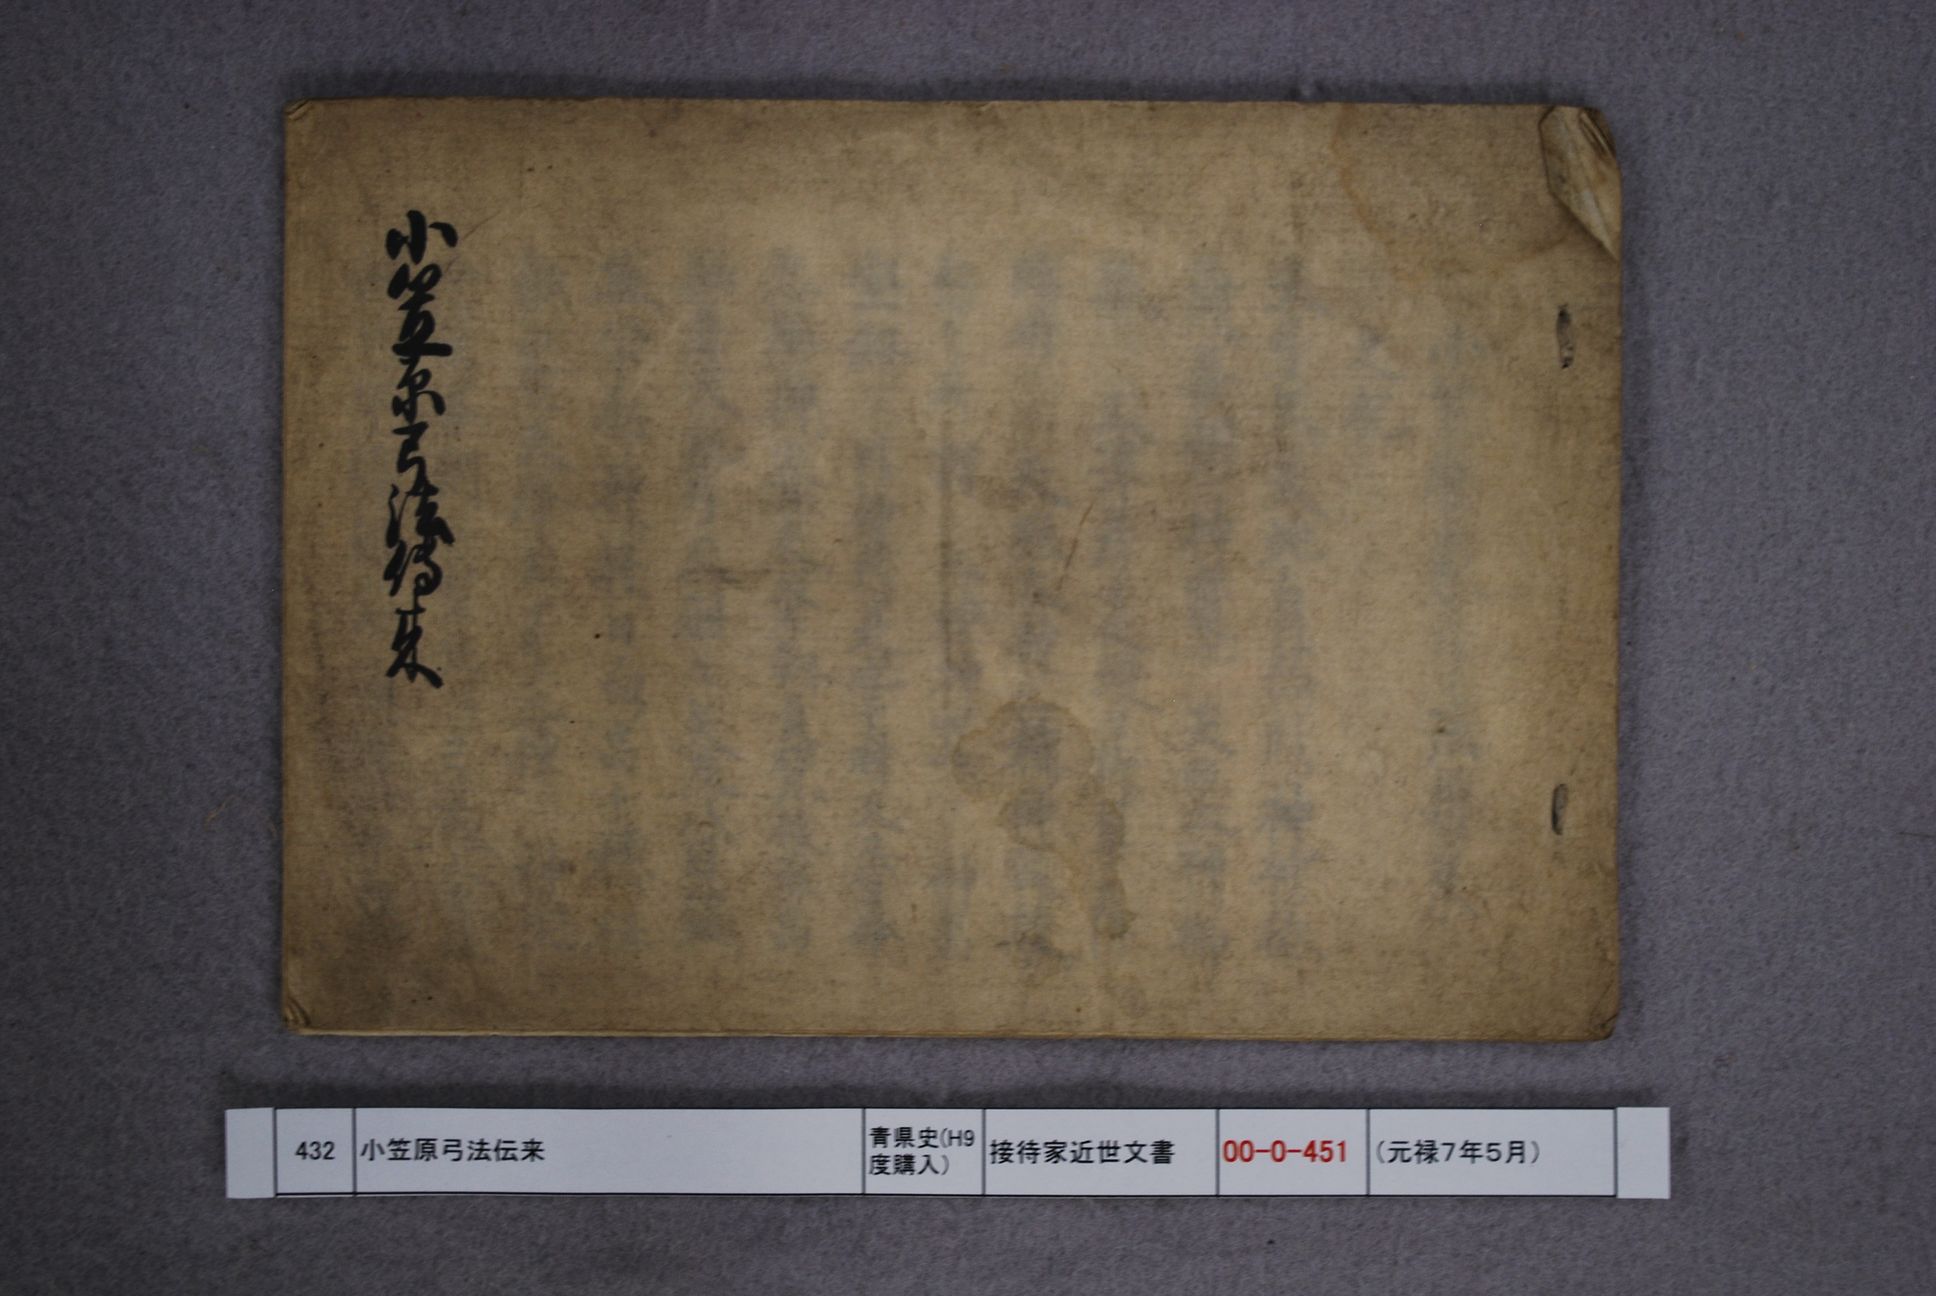 小笠原弓法傳来
432
小笠原弓法伝来
青県史(H9
度購入)
接待家近世文書
00-0-451
(元禄7年5月)